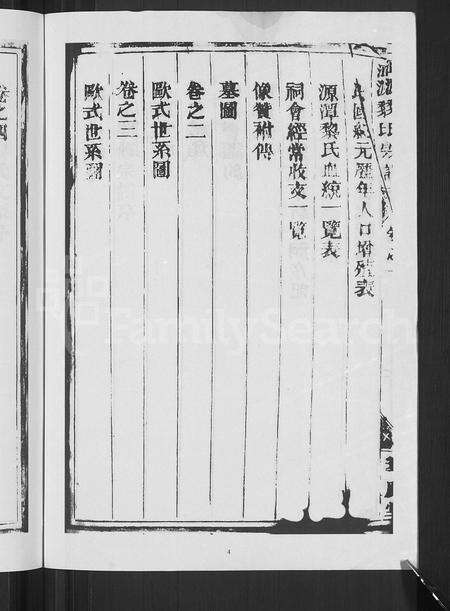 民國紀元歷年人口增殖表
源潭黎氏血統一覽表
祠會經常收支一覽
像贊附傳
墓圖
卷之二
歐式世系圖
卷之三
歐式世系圖
4
FamilySearch